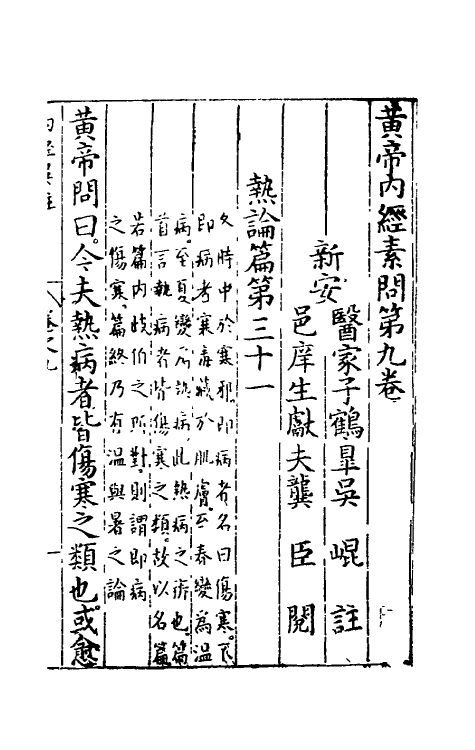 黃帝內經素問第九卷
新安
醫家子鶴臯吳　崐　註
邑庠生獻夫龔　臣　閱
熱論篇第三十一
冬時中於寒邪即病者名曰傷寒。不
即病者寒毒藏於肌膚。至春變為溫
病。至夏變為熱病。此熱病之所也。篇
首言熱病者皆傷寒之類。故以名篇
若篇內岐伯之所對。則謂即病
之傷寒。篇終乃有溫與暑之論
黃帝問曰。今夫熱病者皆傷寒之類也。或愈
卷之九
一